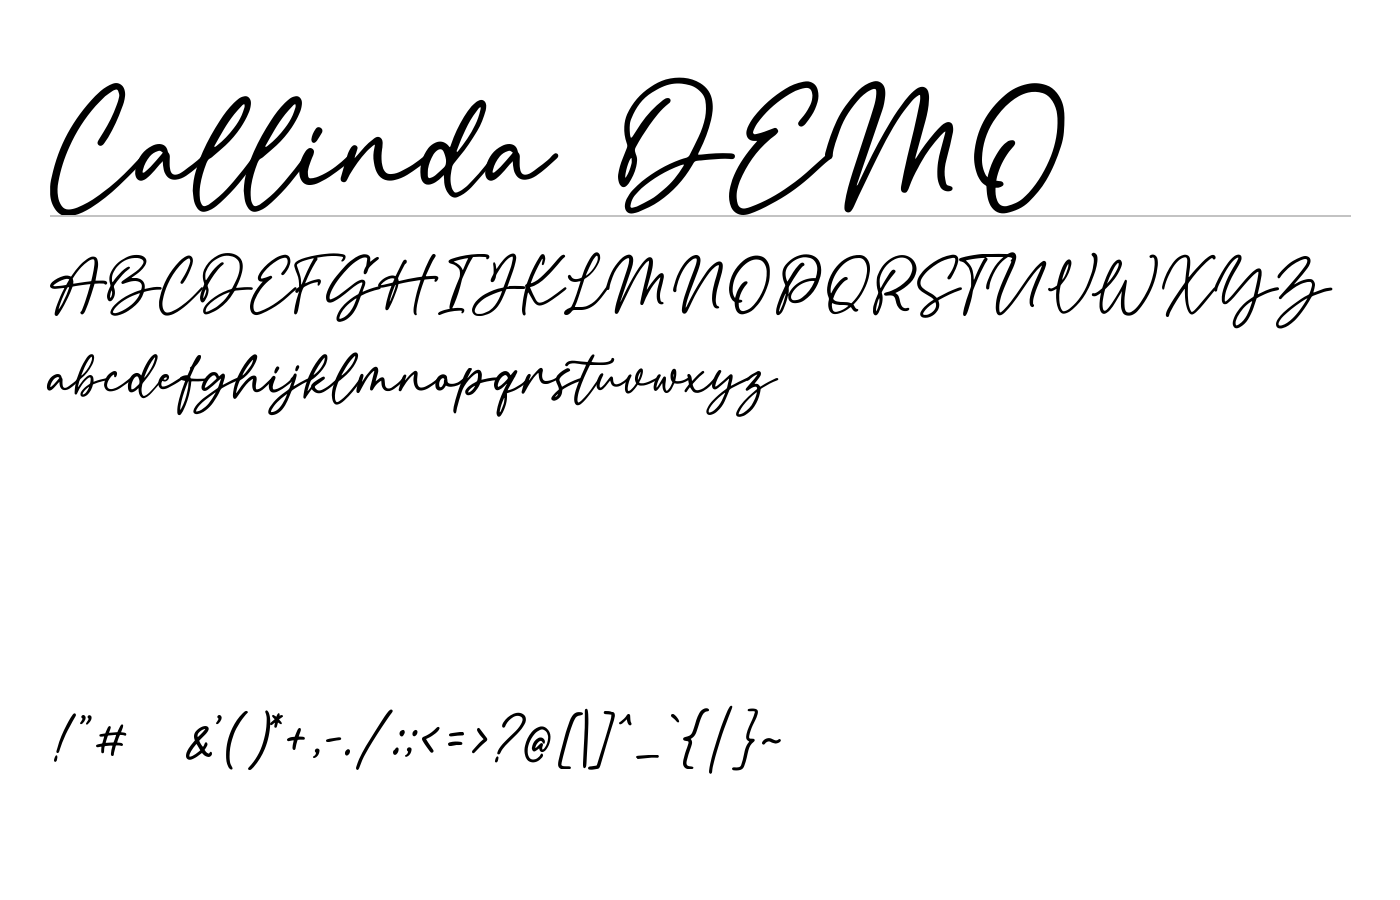 Callinda DEMO
ABCDEFGHIJKLMNOPQRSTUVWXYZ
abcdefghijklmnopqrstuvwxyz
!"# &'()*+,-./:;<=>?@[\]^_`{|}~